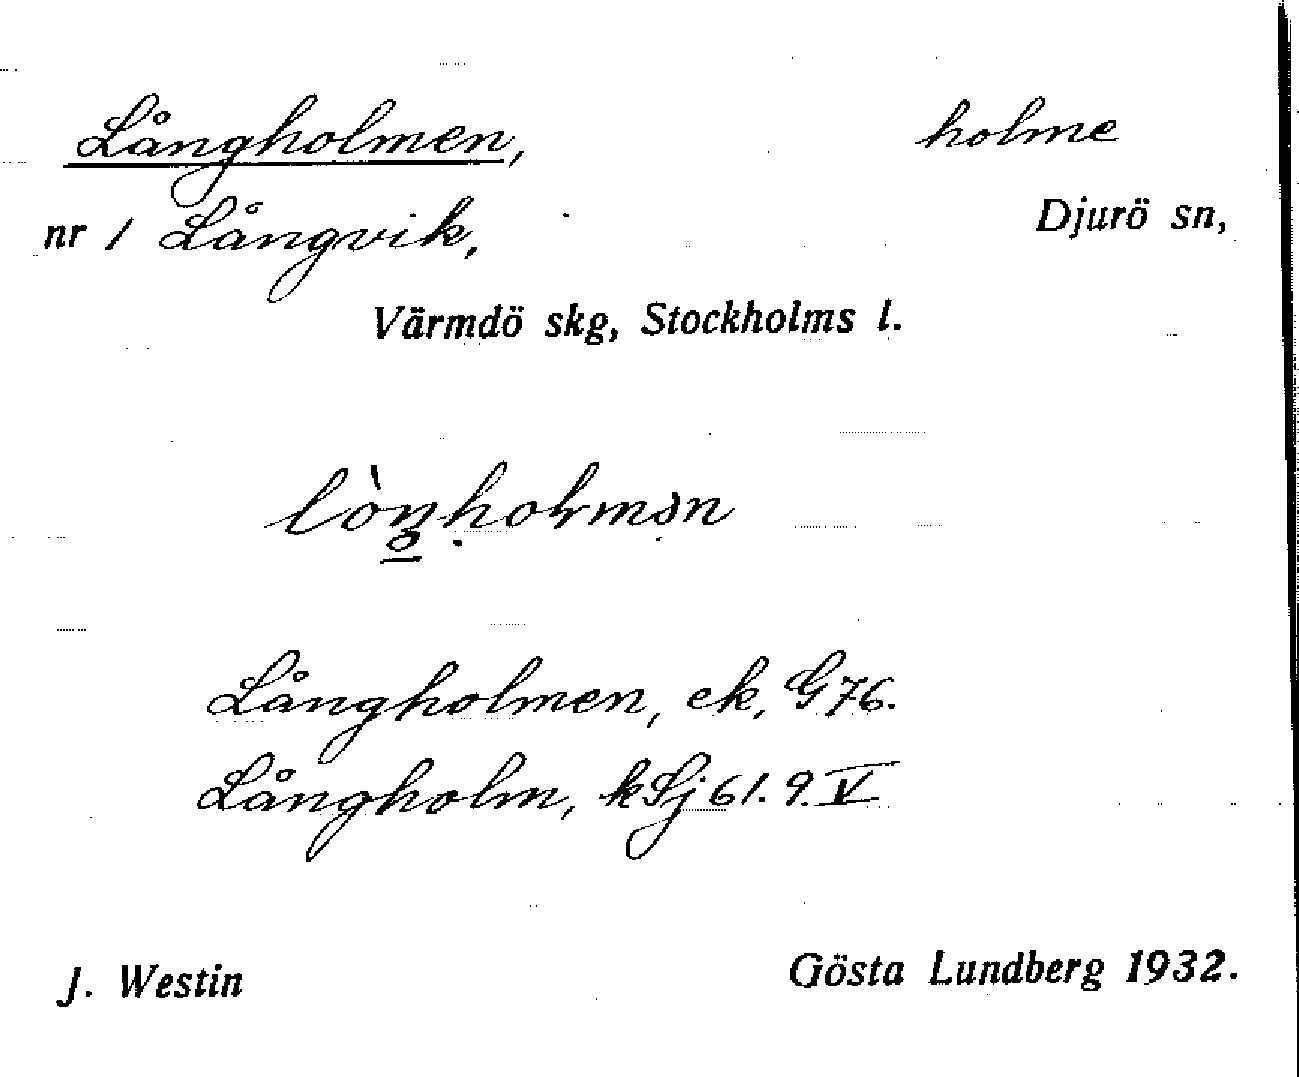 Långholmen, holme
nr 1 Långvik, Djurö sn,
Värmdö skg, Stockholms l.
Långholmen, ek, G 76.
Långholm, k Sj 61. 9. V
J. Westin Gösta Lundberg 1932.